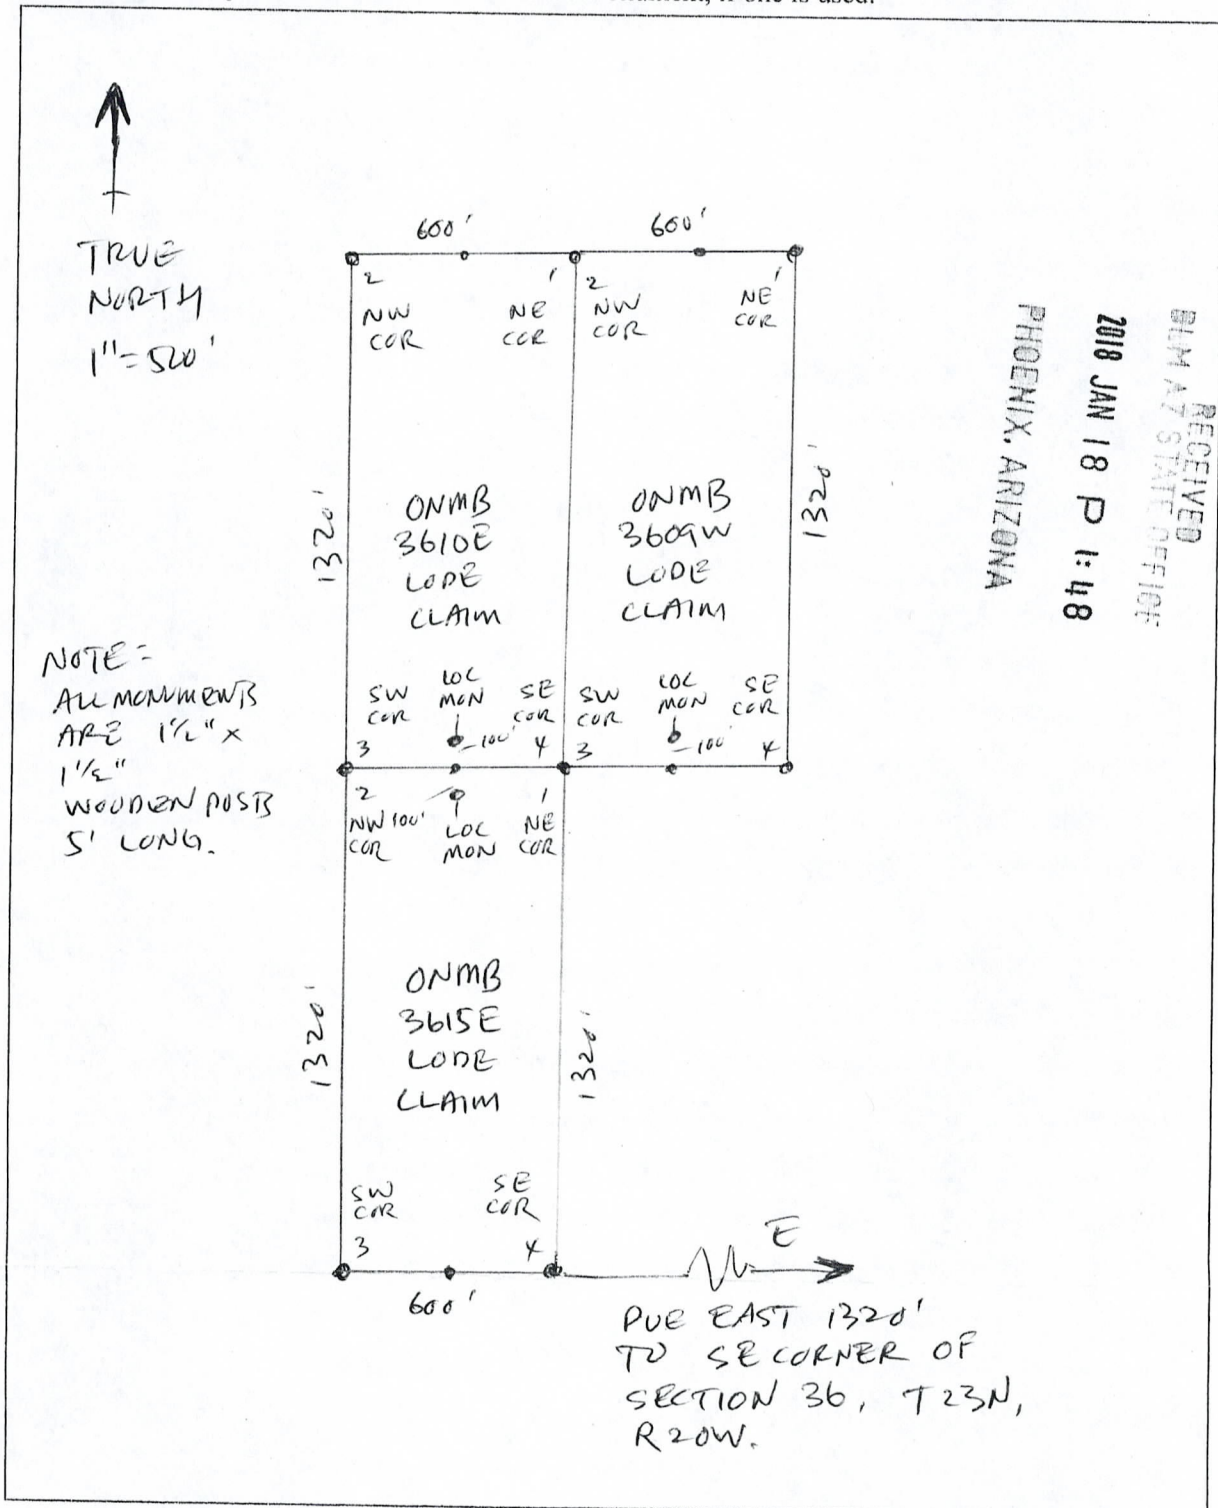 if one is used.
600'
600'
TRUE
NORTH
1"=500'
2
1
2
1
NW
COR
NE
COR
NW
COR
NE
COR
RECEIVED
BLM AZ STATE OFFICE
2018 JAN 18 P 1:48
PHOENIX, ARIZONA
1320'
1320'
ONMB
3610E
LODE
CLAIM
ONMB
3609W
LODE
CLAIM
NOTE=
ALL MONUMENTS
ARE 1½" x
1½"
WOODEN POSTS
5' LONG.
SW
COR
LOC
MON
SE
COR
SW
COR
LOC
MON
SE
COR
3
100'
4
3
100'
4
2
1
NW
COR
100'
LOC
MON
NE
COR
1320'
1320'
ONMB
3615E
LODE
CLAIM
SW
COR
SE
COR
3
4
E
600'
DUE EAST 1320'
TO SE CORNER OF
SECTION 36, T23N,
R20W.